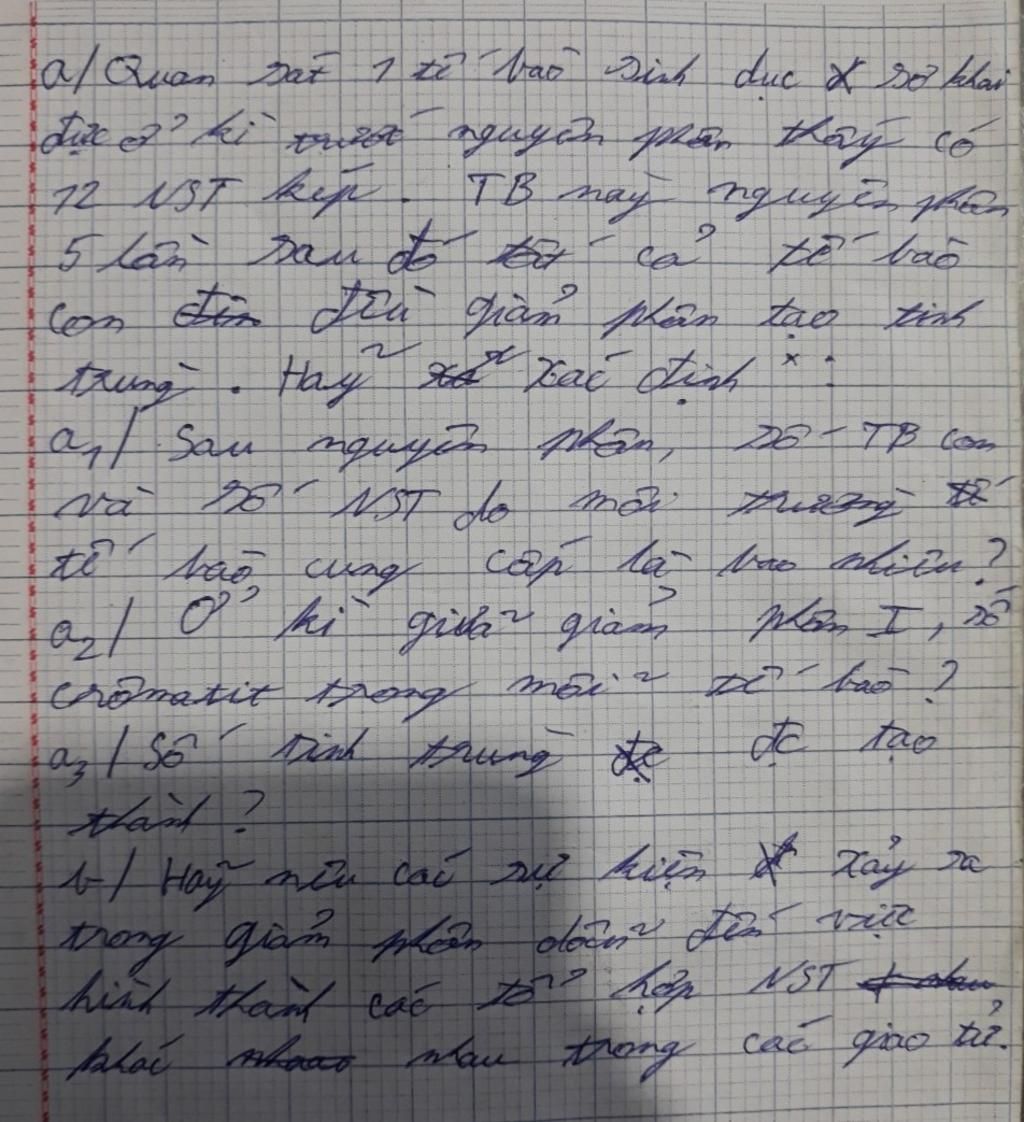 a/ Quan sát 1 tế bào sinh dục sơ khai
đực ở kì nguyên phân thấy có
12 NST kép. TB này nguyên phân
5 lần sau đó tất cả tế bào
con đều giảm phân tạo tinh
trùng. Hãy xác định:
a1/ Sau nguyên phân, số TB con
và số NST do môi trường
tế bào cung cấp là bao nhiêu?
a2/ Ở kì giữa giảm phân I, số
crômatit trong mỗi tế bào?
a3/ Số tinh trùng đc tạo
thành?
b/ Hãy nêu các sự kiện xảy ra
trong giảm phân dẫn đến việc
hình thành các tổ hợp NST
khác nhau trong các giao tử.